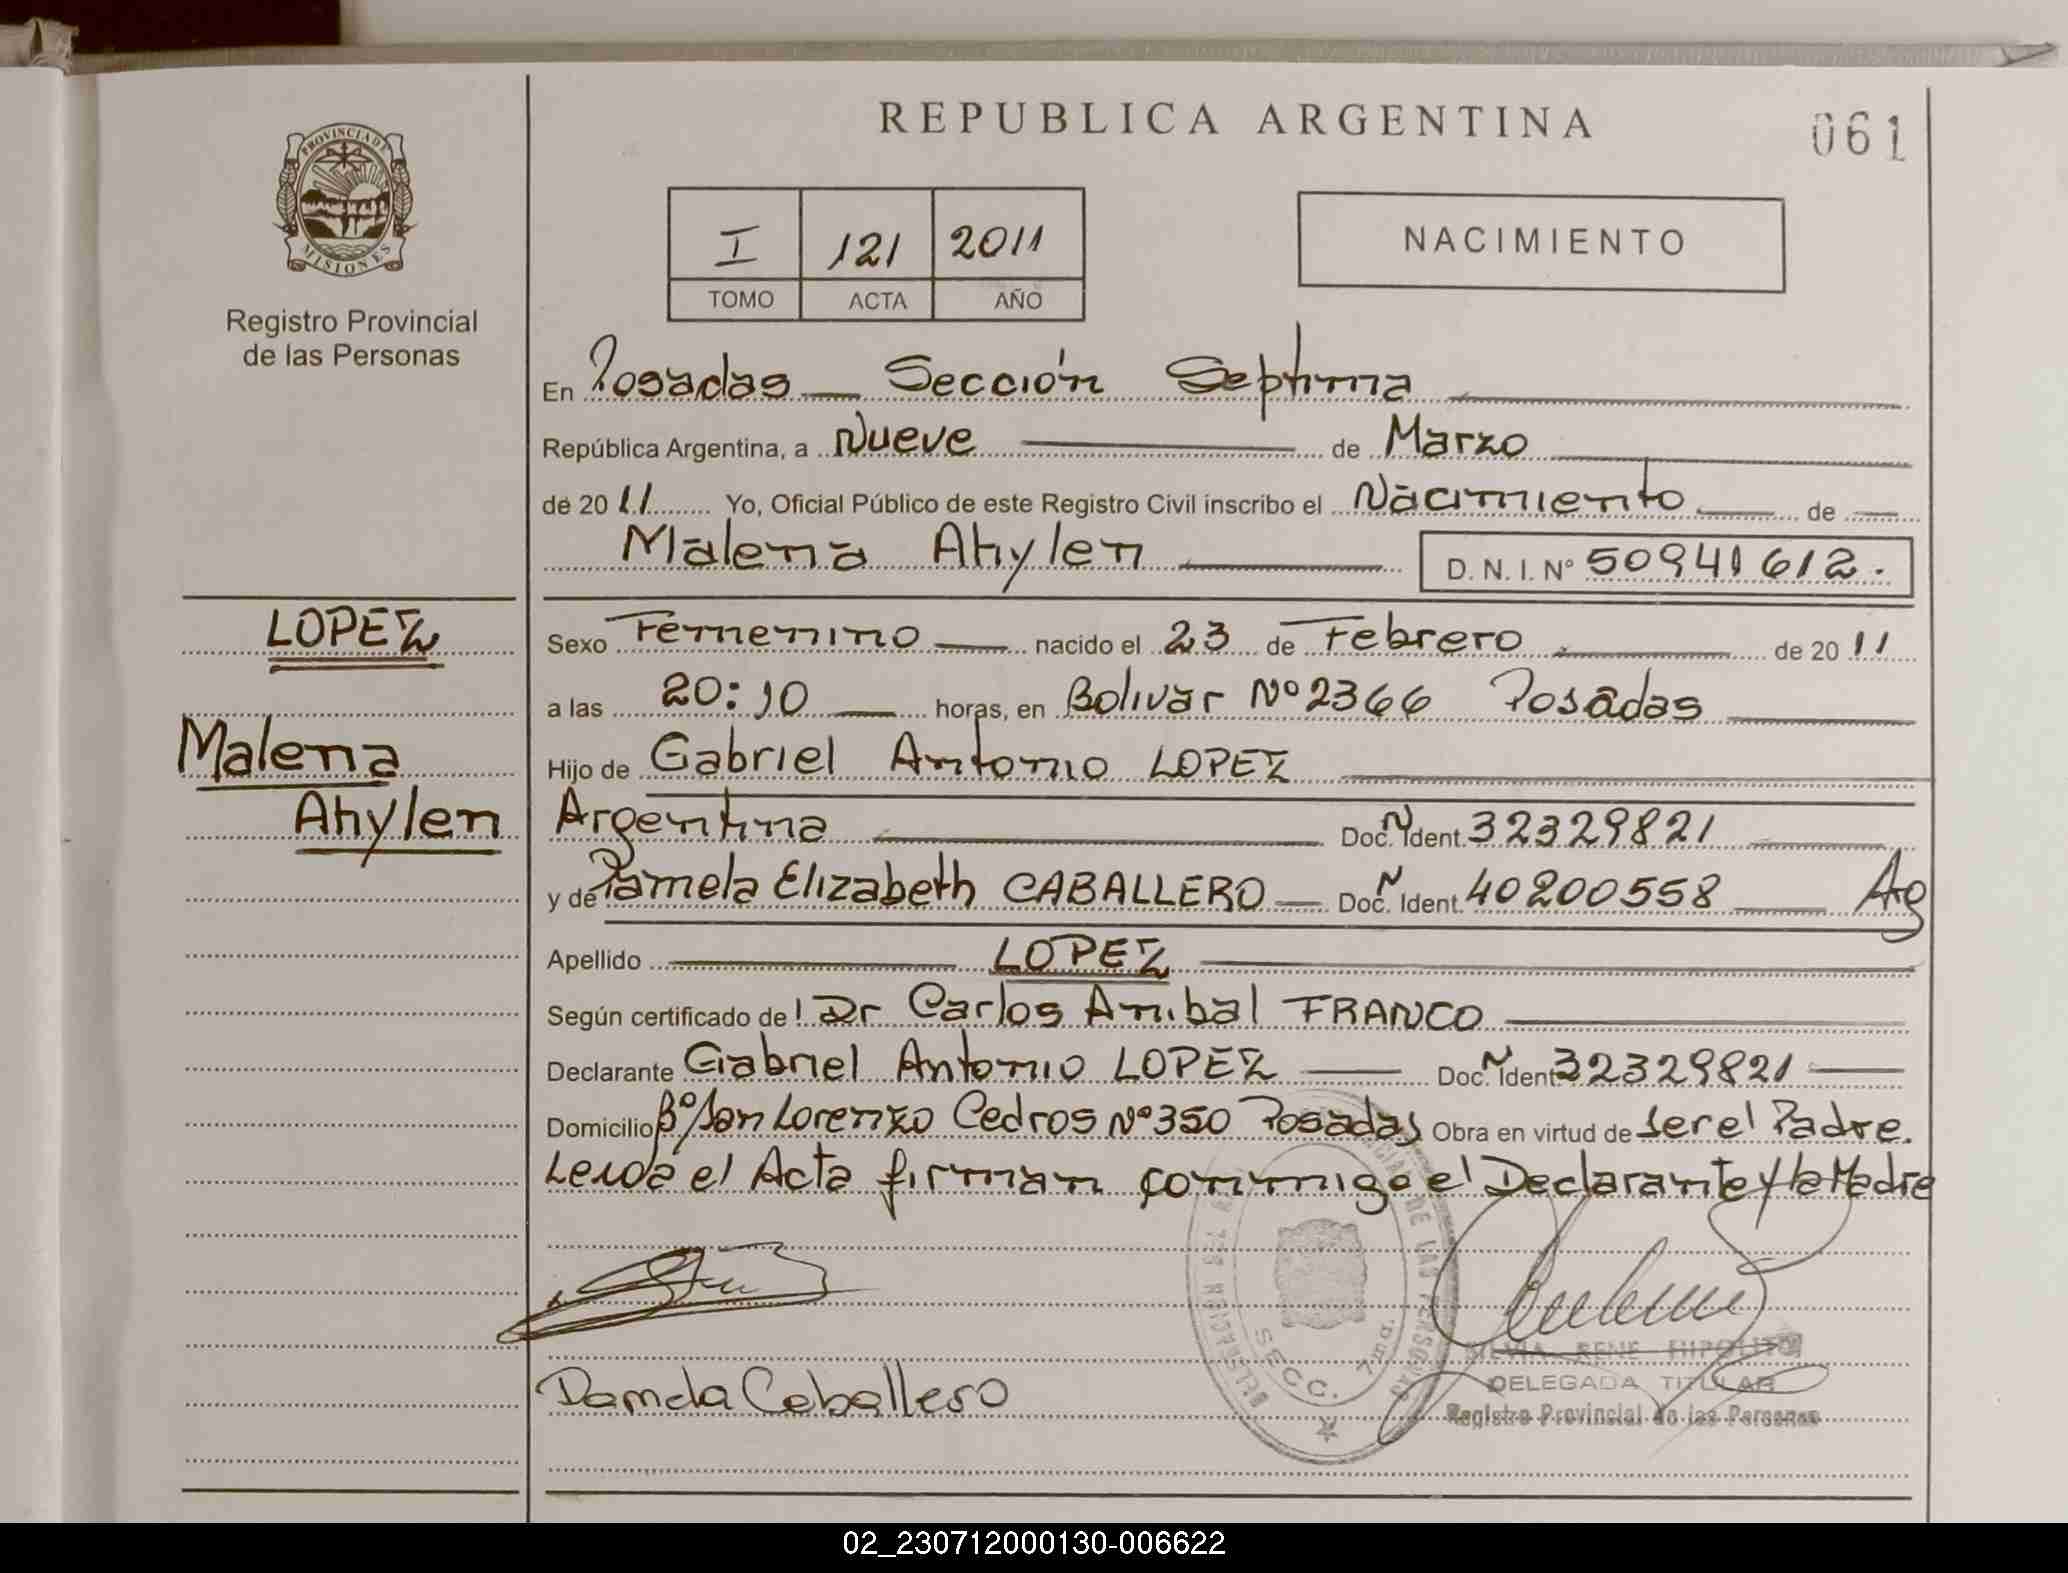 REPUBLICA ARGENTINA
061
PROVINCIA DE
MISIONES
Registro Provincial
de las Personas
I 121 2011
TOMO ACTA AÑO
NACIMIENTO
En Posadas — Sección Septima
República Argentina, a Nueve de Marzo
de 2011 Yo, Oficial Público de este Registro Civil inscribo el Nacimiento de
Malena Ahylen D. N. I. Nº 50941612.
LOPEZ
Malena
Ahylen
Sexo Femenino nacido el 23 de Febrero de 2011
a las 20:10 horas, en Bolivar Nº 2366 Posadas
Hijo de Gabriel Antonio LOPEZ
Argentina Doc. N Ident. 32329821
y de Pamela Elizabeth CABALLERO Doc. N Ident. 40200558 Arg
Apellido LOPEZ
Según certificado de Dr Carlos Anibal FRANCO
Declarante Gabriel Antonio LOPEZ Doc. N Ident. 32329821
Domicilio Bº San Lorenzo Cedros Nº 350 Posadas Obra en virtud de ser el Padre.
Leida el Acta firman conmigo el Declarante y la Madre
SECC. 7
Pamela Caballero
SILVIA RENE HIPOLITO
DELEGADA TITULAR
Registro Provincial de las Personas
02_230712000130-006622